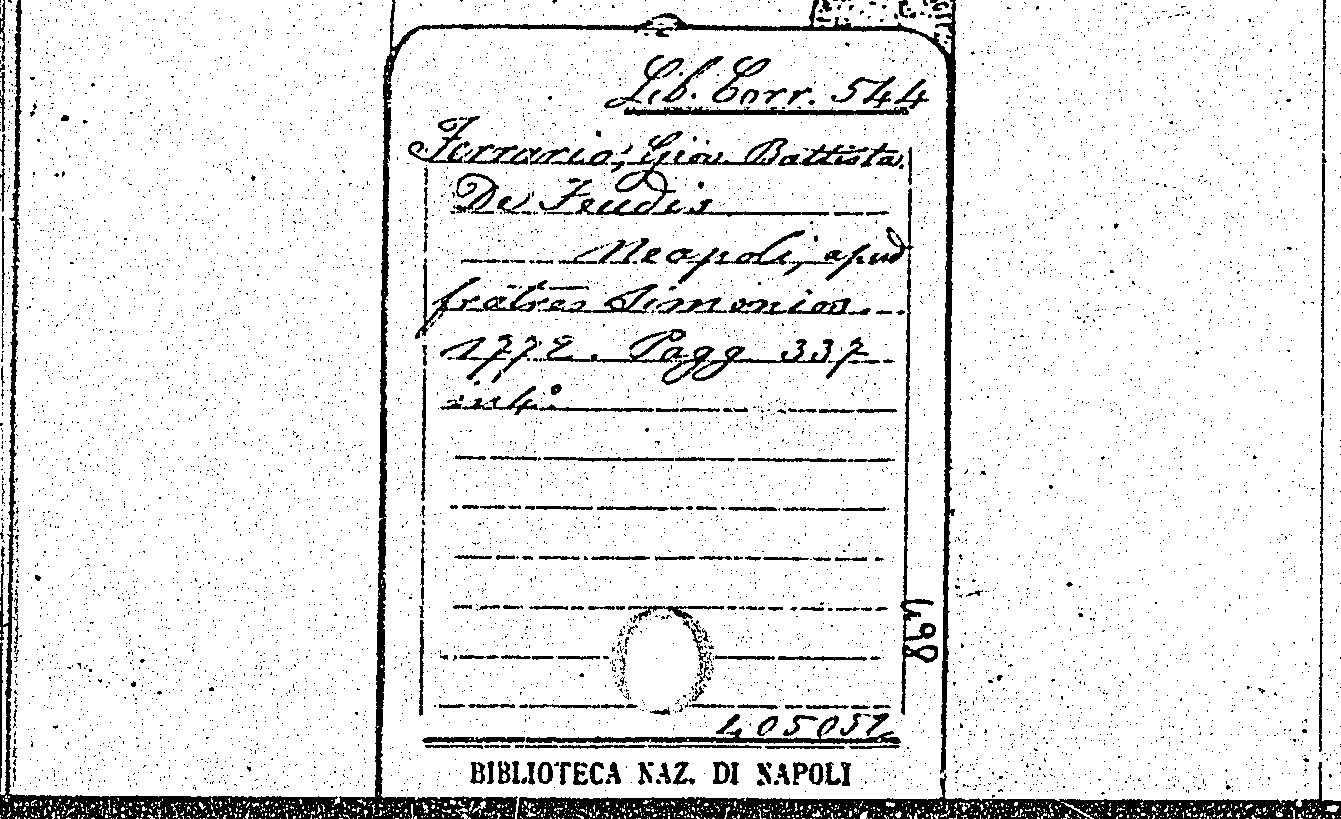 Lib. Corr. 544
Ferrario, Giov. Battista.
De Feudis
Neapoli, apud
fratres Simonios.
1772. Pagg 337
in 4°
405051
BIBLIOTECA NAZ. DI NAPOLI